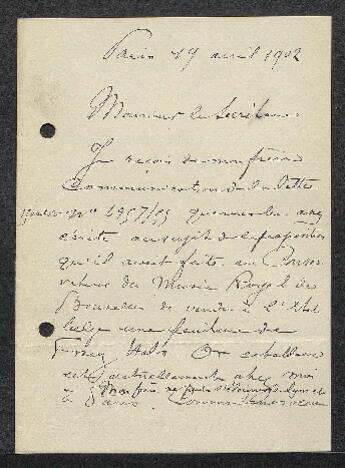 Paris 19 avril 1902
Monsieur le Secrétaire
Je reçois de mon frère
communication de la lettre
n° 4957/53 que vous lui avez
écrite au sujet de la proposition
qu'il avait faite au Conser
vateur du Musée Royal de
Bruxelles de vendre à l'Etat
belge une peinture de
Franz Hals Or ce tableau
est actuellement chez moi
à Paris